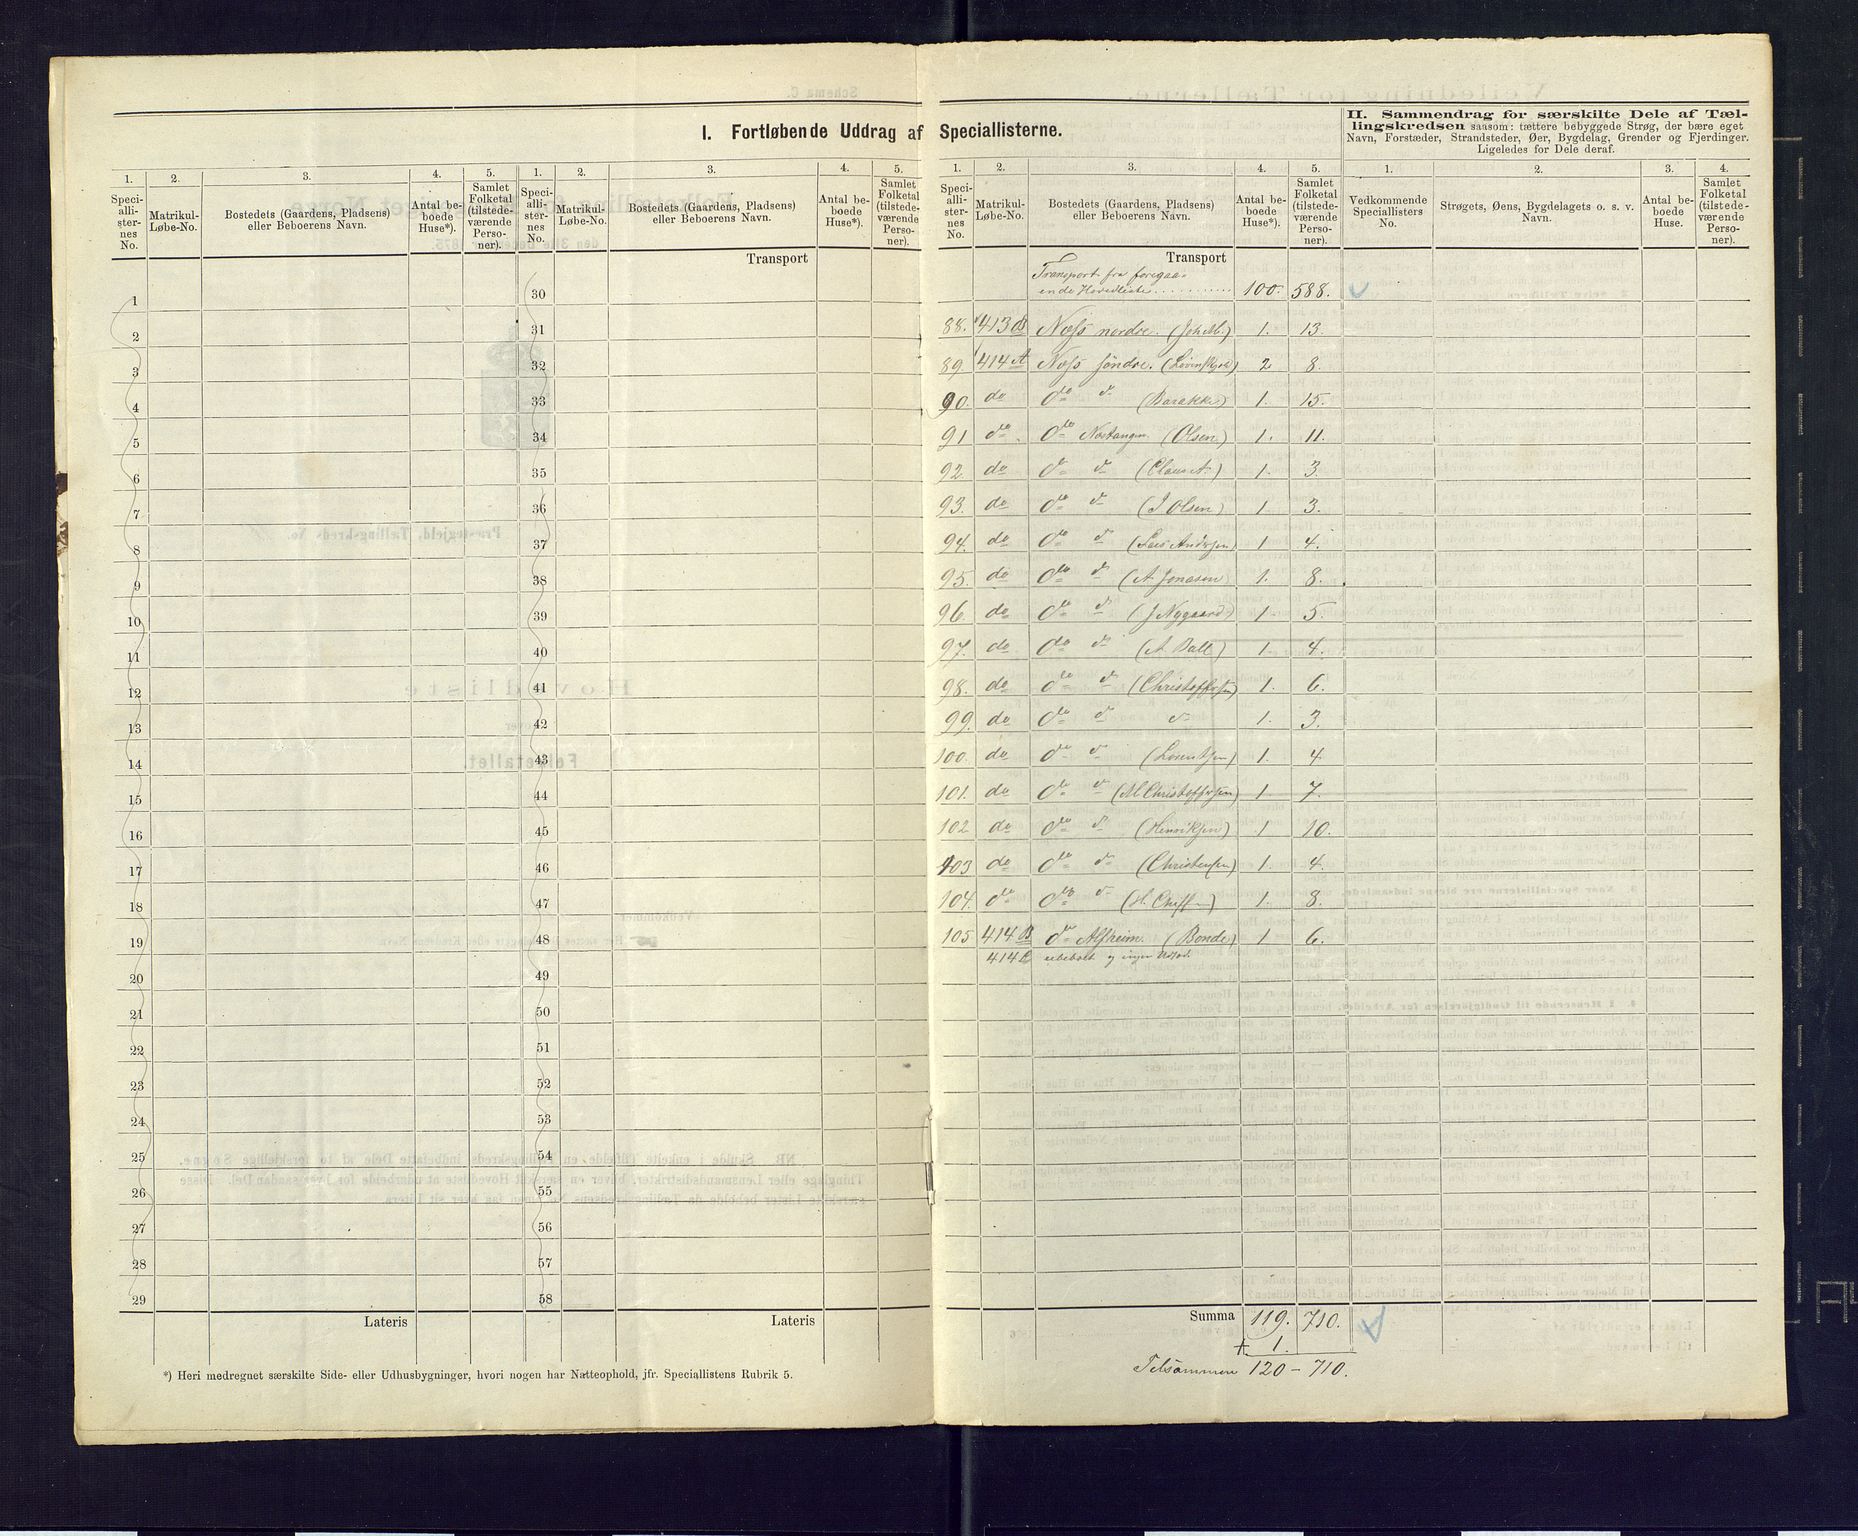 I. Fortløbende Uddrag af Speciallisterne.
1. 2. 3. 4. 5. 1. 2. 3. 4. 5.
Speciallisternes No. Matrikul-Løbe-No. Bostedets (Gaardens, Pladsens) eller Beboerens Navn. Antal beboede Huse*). Samlet Folketal (tilstedeværende Personer). Speciallisternes No. Matrikul-Løbe-No. Bostedets (Gaardens, Pladsens) eller Beboerens Navn. Antal beboede Huse*). Samlet Folketal (tilstedeværende Personer).
Transport
1 30
2 31
3 32
4 33
5 34
6 35
7 36
8 37
9 38
10 39
11 40
12 41
13 42
14 43
15 44
16 45
17 46
18 47
19 48
20 49
21 50
22 51
23 52
24 53
25 54
26 55
27 56
28 57
29 58
Lateris Lateris
*) Heri medregnet særskilte Side- eller Udhusbygninger, hvori nogen har Natteophold, jfr. Speciallistens Rubrik 5.
II. Sammendrag for særskilte Dele af Tæl-
lingskredsen saasom: tættere bebyggede Strøg, der bære eget
Navn, Forstæder, Strandsteder, Øer, Bygdelag, Grender og Fjerdinger.
Ligeledes for Dele deraf.
1. 2. 3. 4. 5. 1. 2. 3. 4.
Speciallisternes No. Matrikul-Løbe-No. Bostedets (Gaardens, Pladsens) eller Beboerens Navn. Antal beboede Huse*). Samlet Folketal (tilstedeværende Personer). Vedkommende Speciallisters No. Strøgets, Øens, Bygdelagets o. s. v. Navn. Antal beboede Huse. Samlet Folketal (tilstedeværende Personer).
Transport
Transport fra foregaa-
ende Hovedliste .......... 100. 588.
88. 413 B Næss nordre. 1. 13.
89. 414 A Næss søndre. 2 8.
90. do do d (Barakke) 1. 15.
91 do do (Olsen) 1. 11.
92. do d d 1. 3.
93. do do d (J Olsen) 1 3.
94. do do d (Lars Andersen) 1 4.
95. do do d (A Jonasen 1. 8.
96. do do d (J Nygaard) 1. 5.
97. do do d (A Ball) 1. 4.
98. do do d (Christoffersen) 1. 6.
99. do do d d 1. 3.
100. do do d (Lorentsen) 1. 4
101. do do d (M Christoffersen) 1 7.
102 do do d (Henriksen) 1 10.
103 do do d (Christensen) 1. 4.
104. do do d 1. 8.
105 414 B do Alfheim. (Bonde) 1 6.
414 C ubeboet og ingen
Summa 119. 710.
+ 1.
Tilsammen 120 - 710.